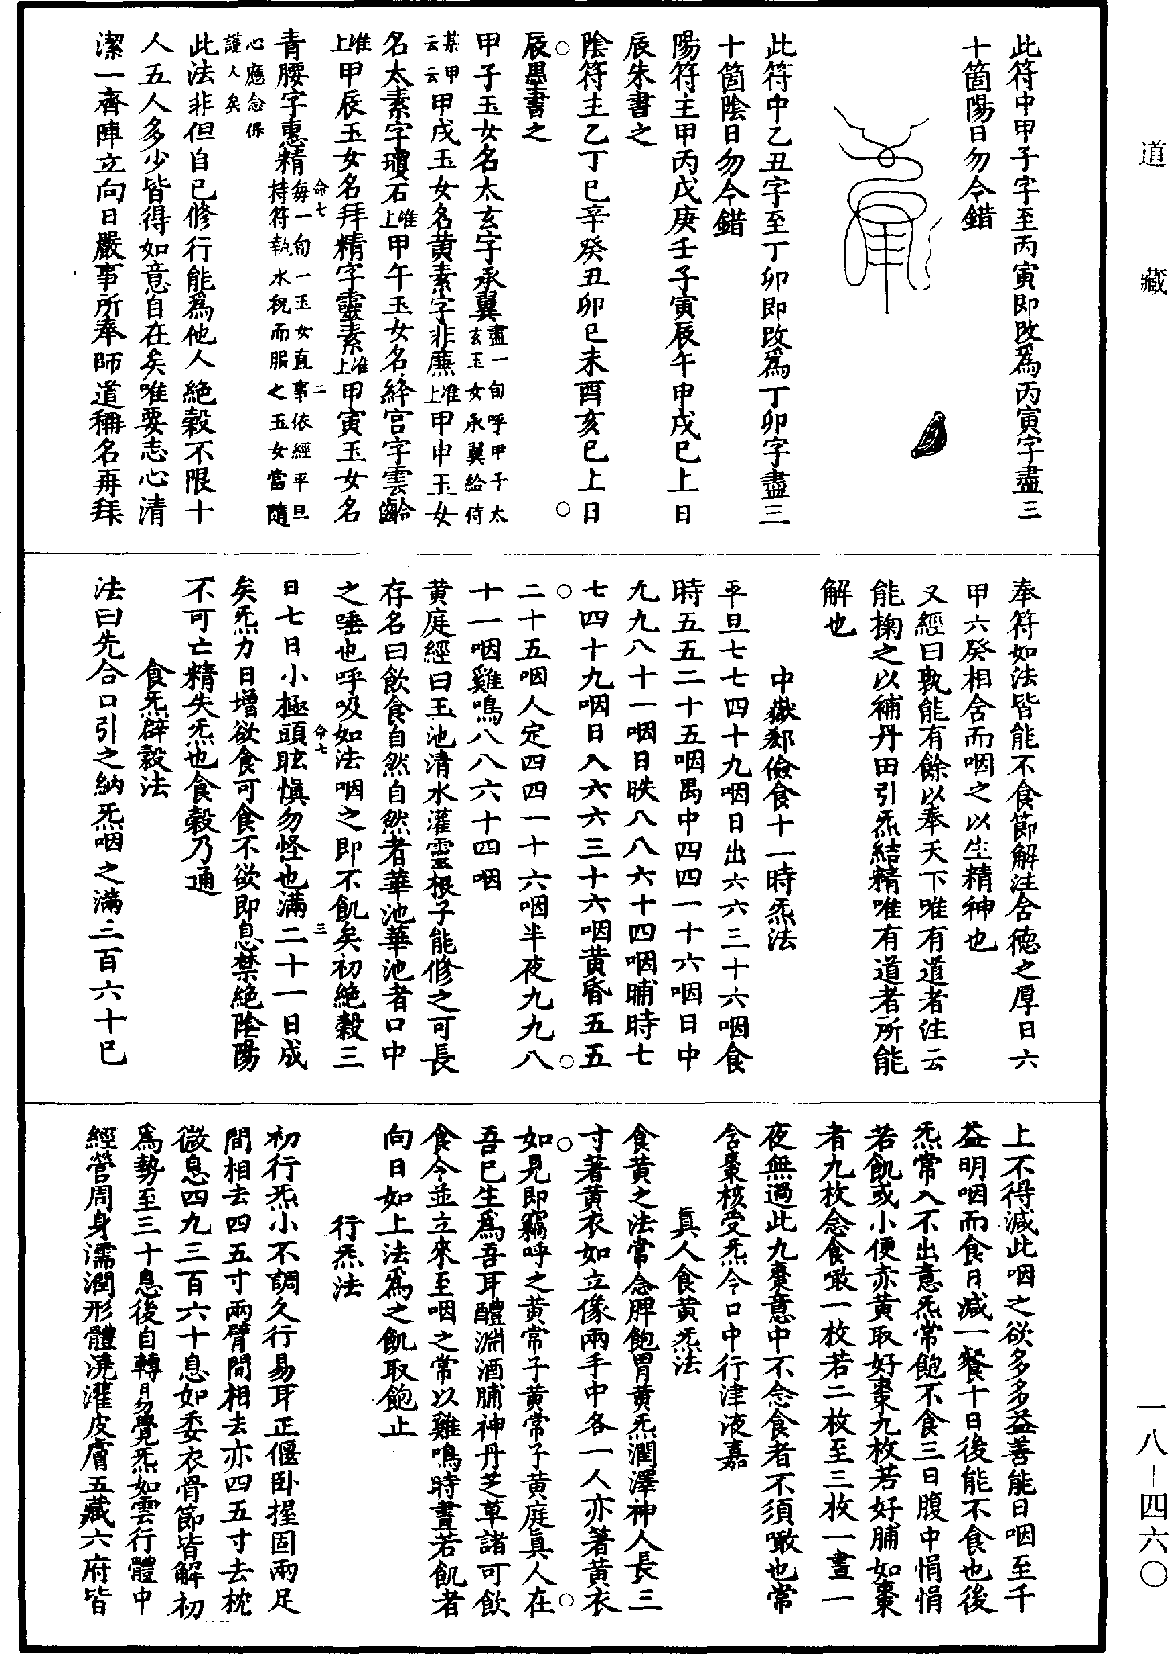 道藏
此符中甲子字至丙寅即改爲丙寅字盡三
十箇陽日勿令錯
此符中乙丑字至丁卯即改爲丁卯字盡三
十箇陰日勿令錯
陽符主甲丙戊庚壬子寅辰午申戌巳上日
辰朱書之
陰符主乙丁巳辛癸丑卯巳未酉亥巳上日
辰墨書之
甲子玉女名太玄字承翼盡一旬呼甲子太玄玉女承翼給侍
某甲云云甲戌玉女名黃素字非廉准上甲申玉女
名太素字瓊石准上甲午玉女名絳宮字雲齡
准上甲辰玉女名拜精字靈素准上甲寅玉女名
青腰字惠精每一旬一玉女直事依經平旦持符執水祝而服之玉女當隨
心應念保護人矣
命七 二
此法非但自已修行能爲他人絶穀不限十
人五人多少皆得如意自在矣唯要志心清
潔一齊陣立向日嚴事所奉師道稱名再拜
奉符如法皆能不食節解注含德之厚日六
甲六癸相含而咽之以生精神也
又經曰孰能有餘以奉天下唯有道者注云
能掬之以補丹田引炁結精唯有道者所能
解也
中嶽郄儉食十一時炁法
平旦七七四十九咽日出六六三十六咽食
時五五二十五咽禺中四四一十六咽日中
九九八十一咽日昳八八六十四咽晡時七
七四十九咽日入六六三十六咽黃昏五五
二十五咽人定四四一十六咽半夜九九八
十一咽雞鳴八八六十四咽
黃庭經曰玉池清水灌靈根子能修之可長
存名曰飲食自然自然者華池華池者口中
之唾也呼吸如法咽之即不飢矣初絶穀三
命七 三
日七日小極頭眩愼勿怪也滿二十一日成
矣炁力日增欲食可食不欲即息禁絶陰陽
不可亡精失炁也食穀乃通
食炁辟穀法
法曰先合口引之納炁咽之滿三百六十巳
上不得減此咽之欲多多益善能日咽至千
益明咽而食日減一餐十日後能不食也後
炁常入不出意炁常飽不食三日腹中悁悁
若飢或小便赤黃取好棗九枚若好脯如棗
者九枚念食噉一枚若二枚至三枚一晝一
夜無過此九棗意中不念食者不須噉也常
含棗核受炁令口中行津液嘉
眞人食黃炁法
食黃之法常念脾飽胃黃炁潤澤神人長三
寸著黃衣如立像兩手中各一人亦著黃衣
如見即竊呼之黃常子黃常子黃庭眞人在
吾巳生爲吾取醴淵酒脯神丹芝草諸可飲
食令並立來至咽之常以雞鳴時晝若飢者
向日如上法爲之飢取飽止
行炁法
初行炁小不調久行易耳正偃卧握固兩足
間相去四五寸兩臂間相去亦四五寸去枕
微息四九三百六十息如委衣骨節皆解初
爲勢至三十息後自轉易覺炁如雲行體中
經營周身濡潤形體澆灌皮膚五藏六府皆
一八－四六〇